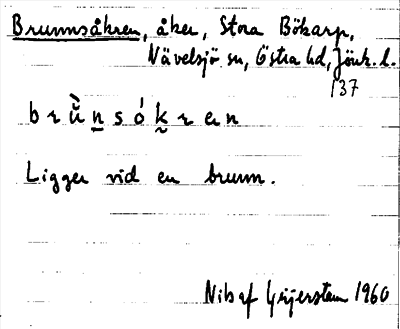 Brunnsåkren, åker, Stora Bökarp,
Nävelsjö sn, Östra hd, Jönk. l.
137
brùnsókren
Ligger vid en brunn.
Nils af Geijerstam 1960